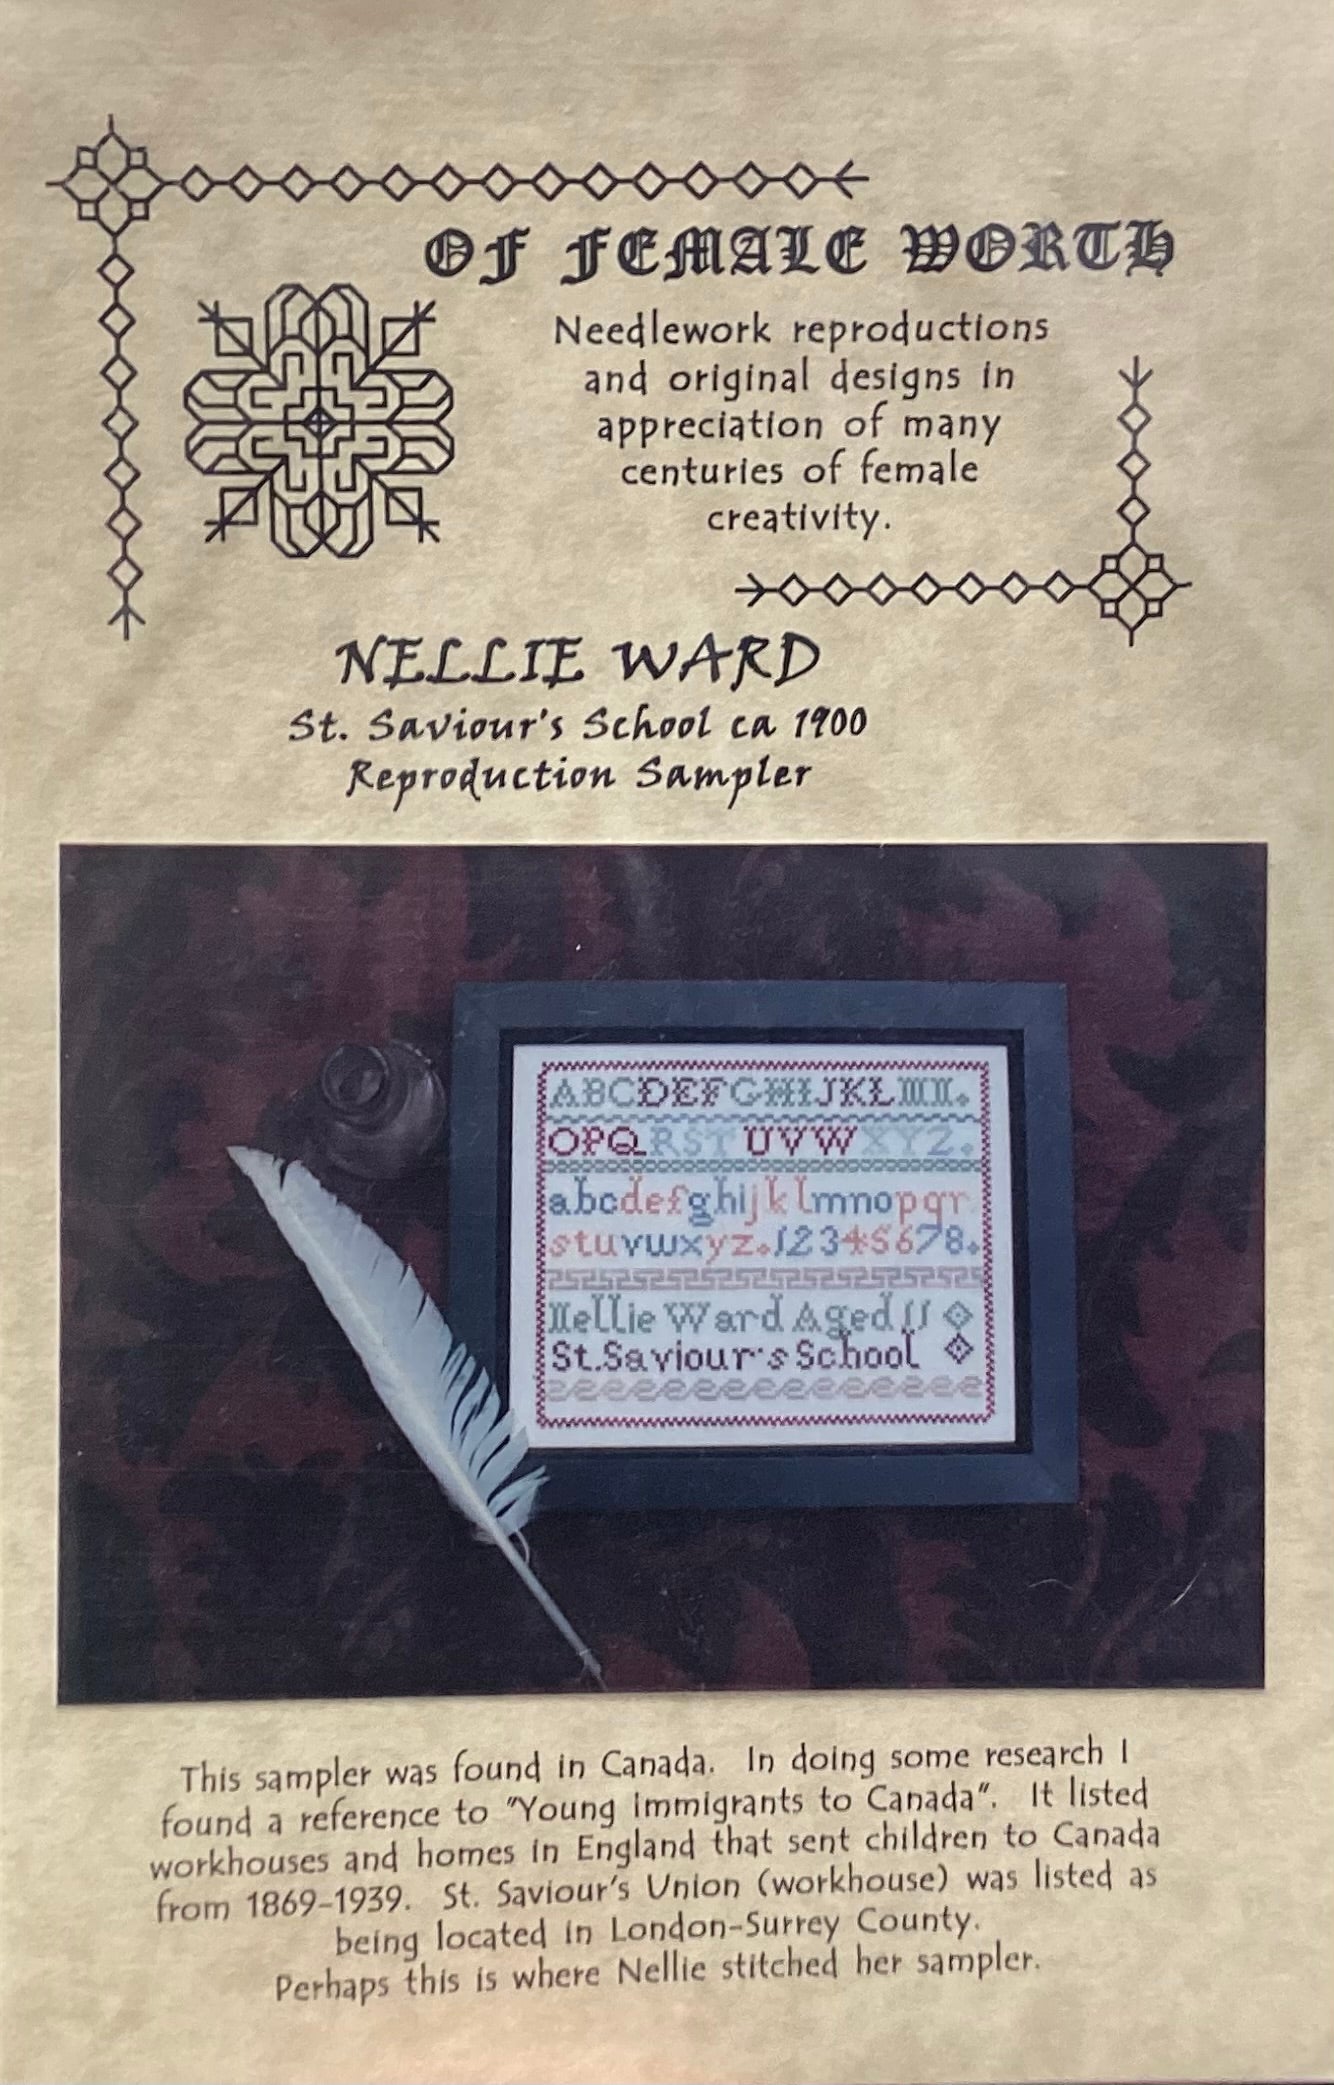 OF FEMALE WORTH
Needlework reproductions
and original designs in
appreciation of many
centuries of female
creativity.
NELLIE WARD
St. Saviour's School ca 1900
Reproduction Sampler
ABCDEFGHIJKLMN.
OPQRSTUVWXYZ.
abcdefghijklmnopqr
stuvwxyz.12345678.
Nellie Ward Aged 11
St. Saviour's School
This sampler was found in Canada. In doing some research I
found a reference to "Young Immigrants to Canada". It listed
workhouses and homes in England that sent children to Canada
from 1869-1939. St. Saviour's Union (workhouse) was listed as
being located in London-Surrey County.
Perhaps this is where Nellie stitched her sampler.